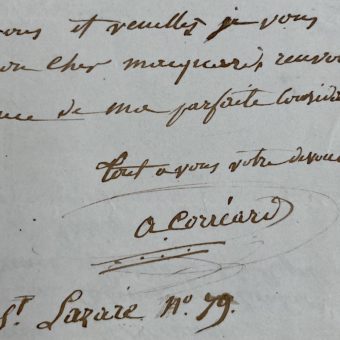 vous et veuillez je vous
mon cher macquart, renvo
nce de ma parfaite Consid
tout a vous votre devou
a Corréard
St. Lazare No. 79.